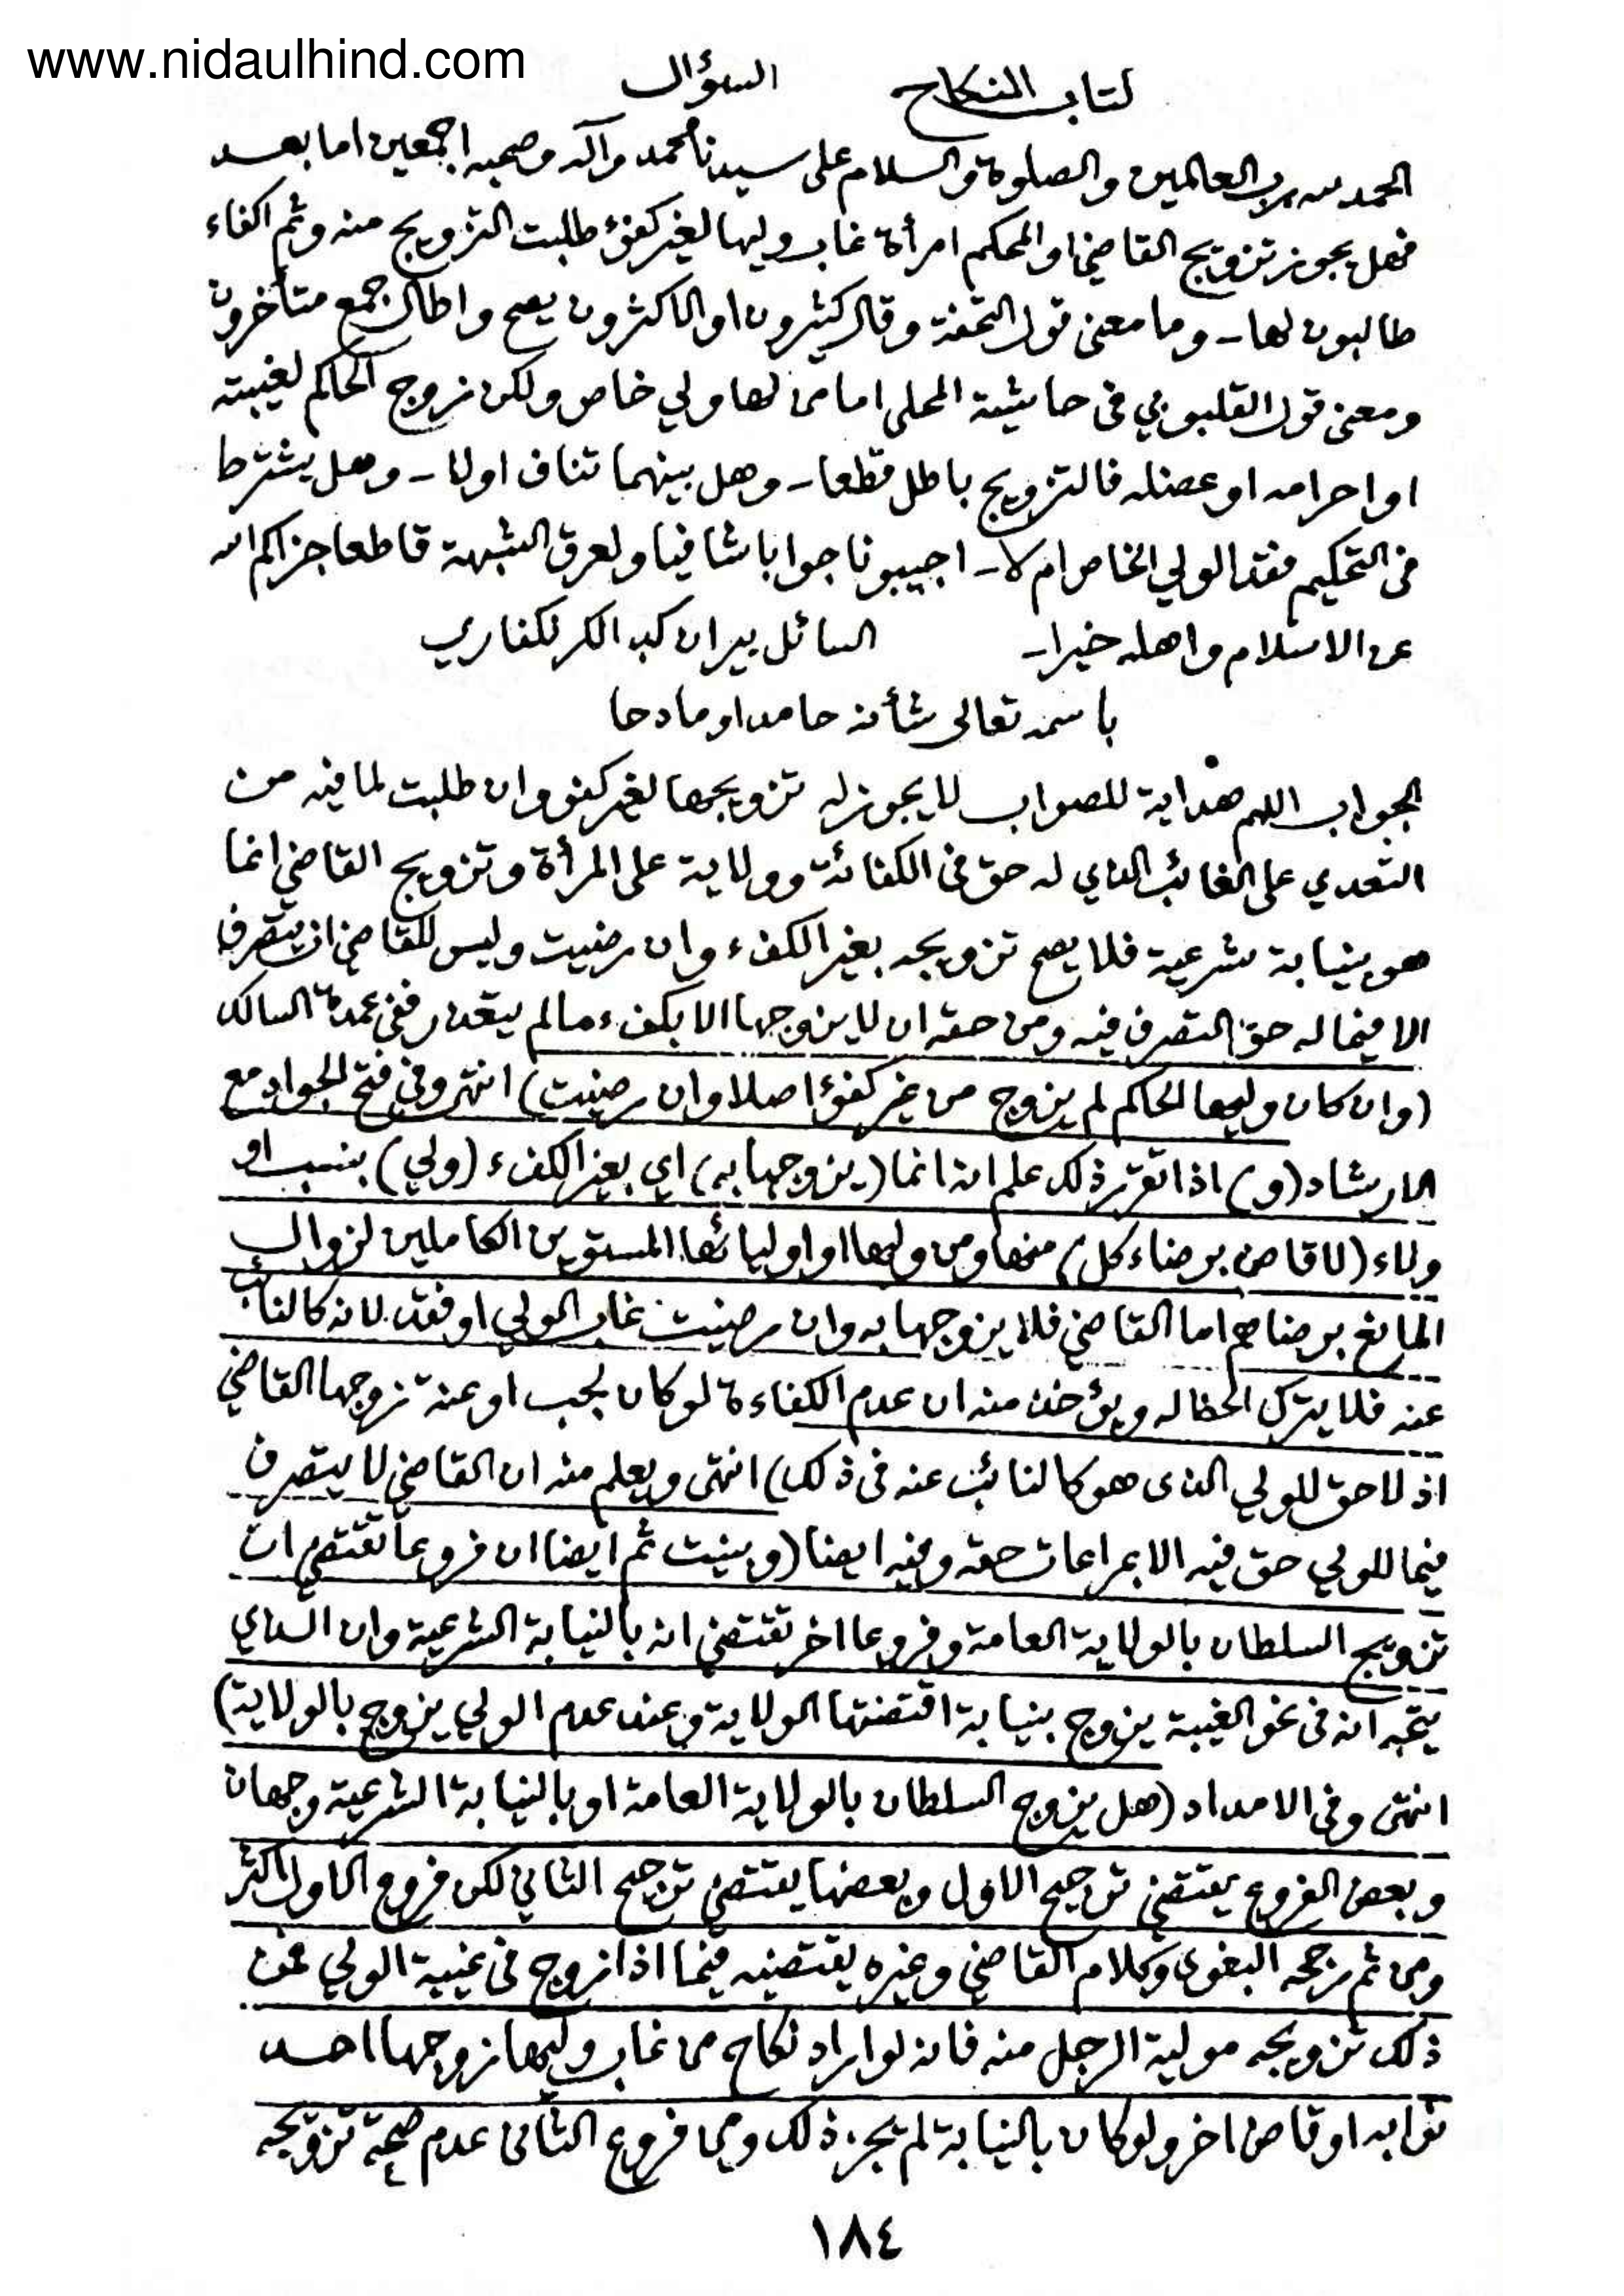 www.nidaulhind.com
كتاب النكاح السؤال
الحمد لله رب العالمين والصلوة والسلام على سيدنا محمد وآله وصحبه اجمعين اما بعد
فهل يجوز تزويج القاضي او المحكم امرأة غاب وليها لغير كفؤ طلبت التزويج منه وثم اكفاء
طالبون لها ـ وما معنى قول التحفة وقال كثيرون او الاكثرون يصح واطال جمع متأخرون
ومعنى قول القليوبي في حاشية المحلى اما من لها ولي خاص ولكن زوج الحاكم لغيبته
او احرامه او عضله فالتزويج باطل قطعا ـ وهل بينهما تناف اولا ـ وهل يشترط
في التحكيم فقد الولي الخاص ام لا ـ اجيبونا جوابا شافيا ولعرق الشبهة قاطعا جزاكم الله
عن الاسلام واهله خيرا ـ السائل بيران كبد الكرلكفاري
باسمه تعالى شأنه حامدا ومادحا
الجواب اللهم هداية للصواب لا يجوز له تزويجها لغير كفؤ وان طلبت لما فيه من
التعدي على الغائب الذي له حق في الكفائة وولاية على المرأة وتزويج القاضي انما
هو بنيابة شرعية فلا يصح تزويجه بغير الكفء وان رضيت وليس للقاضي ان يتصرف
الا فيما له حق التصرف فيه ومن حقه ان لا يزوجها الا بكفء مالم يتعذر ففي عمدة السالك
(وان كان وليها الحاكم لم يزوج من غير كفؤ اصلا وان رضيت) انتهى وفي فتح الجواد مع
الارشاد (و) اذا تقرر ذلك علم انه انما (يزوجها به) اي بغير الكفء (ولي) بنسب او
ولاء (لا قاض برضاء كل) منها ومن وليها او اوليائها المستوين الكاملين لزوال
المانع برضاهم اما القاضي فلا يزوجها به وان رضيت غاب الولي او فقد لانه كالنائب
عنه فلا يترك الحظ له ويؤخذ منه ان عدم الكفاءة لو كان لجب او عنة تزوجها القاضي
اذ لا حق للولي الذى هو كالنائب عنه في ذلك) انتهى ويعلم منه ان القاضي لا يتصرف
فيما للولي حق فيه الا بمراعات حقه وفيه ايضا (وبينت ثم ايضا ان فروعا تقتضي ان
تزويج السلطان بالولاية العامة وفروعا اخر تقتضي انه بالنيابة الشرعية وان الذي
يتجه انه في نحو الغيبة يزوج بنيابة اقتضتها الولاية وعند عدم الولي يزوج بالولاية)
انتهى وفي الامداد (هل يزوج السلطان بالولاية العامة او بالنيابة الشرعية وجهان
وبعض الفروع يقتضي ترجيح الاول وبعضها يقتضي ترجيح الثاني لكن فروع الاول اكثر
ومن ثم رجحه البغوى وكلام القاضي وغيره يقتضيه فيما اذا زوج في غيبة الولي فمن
ذلك تزويجه مولية الرجل منه فانه لو اراد نكاح من غاب وليها زوجها احد
نوابه او قاض اخر ولو كان بالنيابة لم يجز ذلك ومن فروع الثاني عدم صحة تزويجه
١٨٤